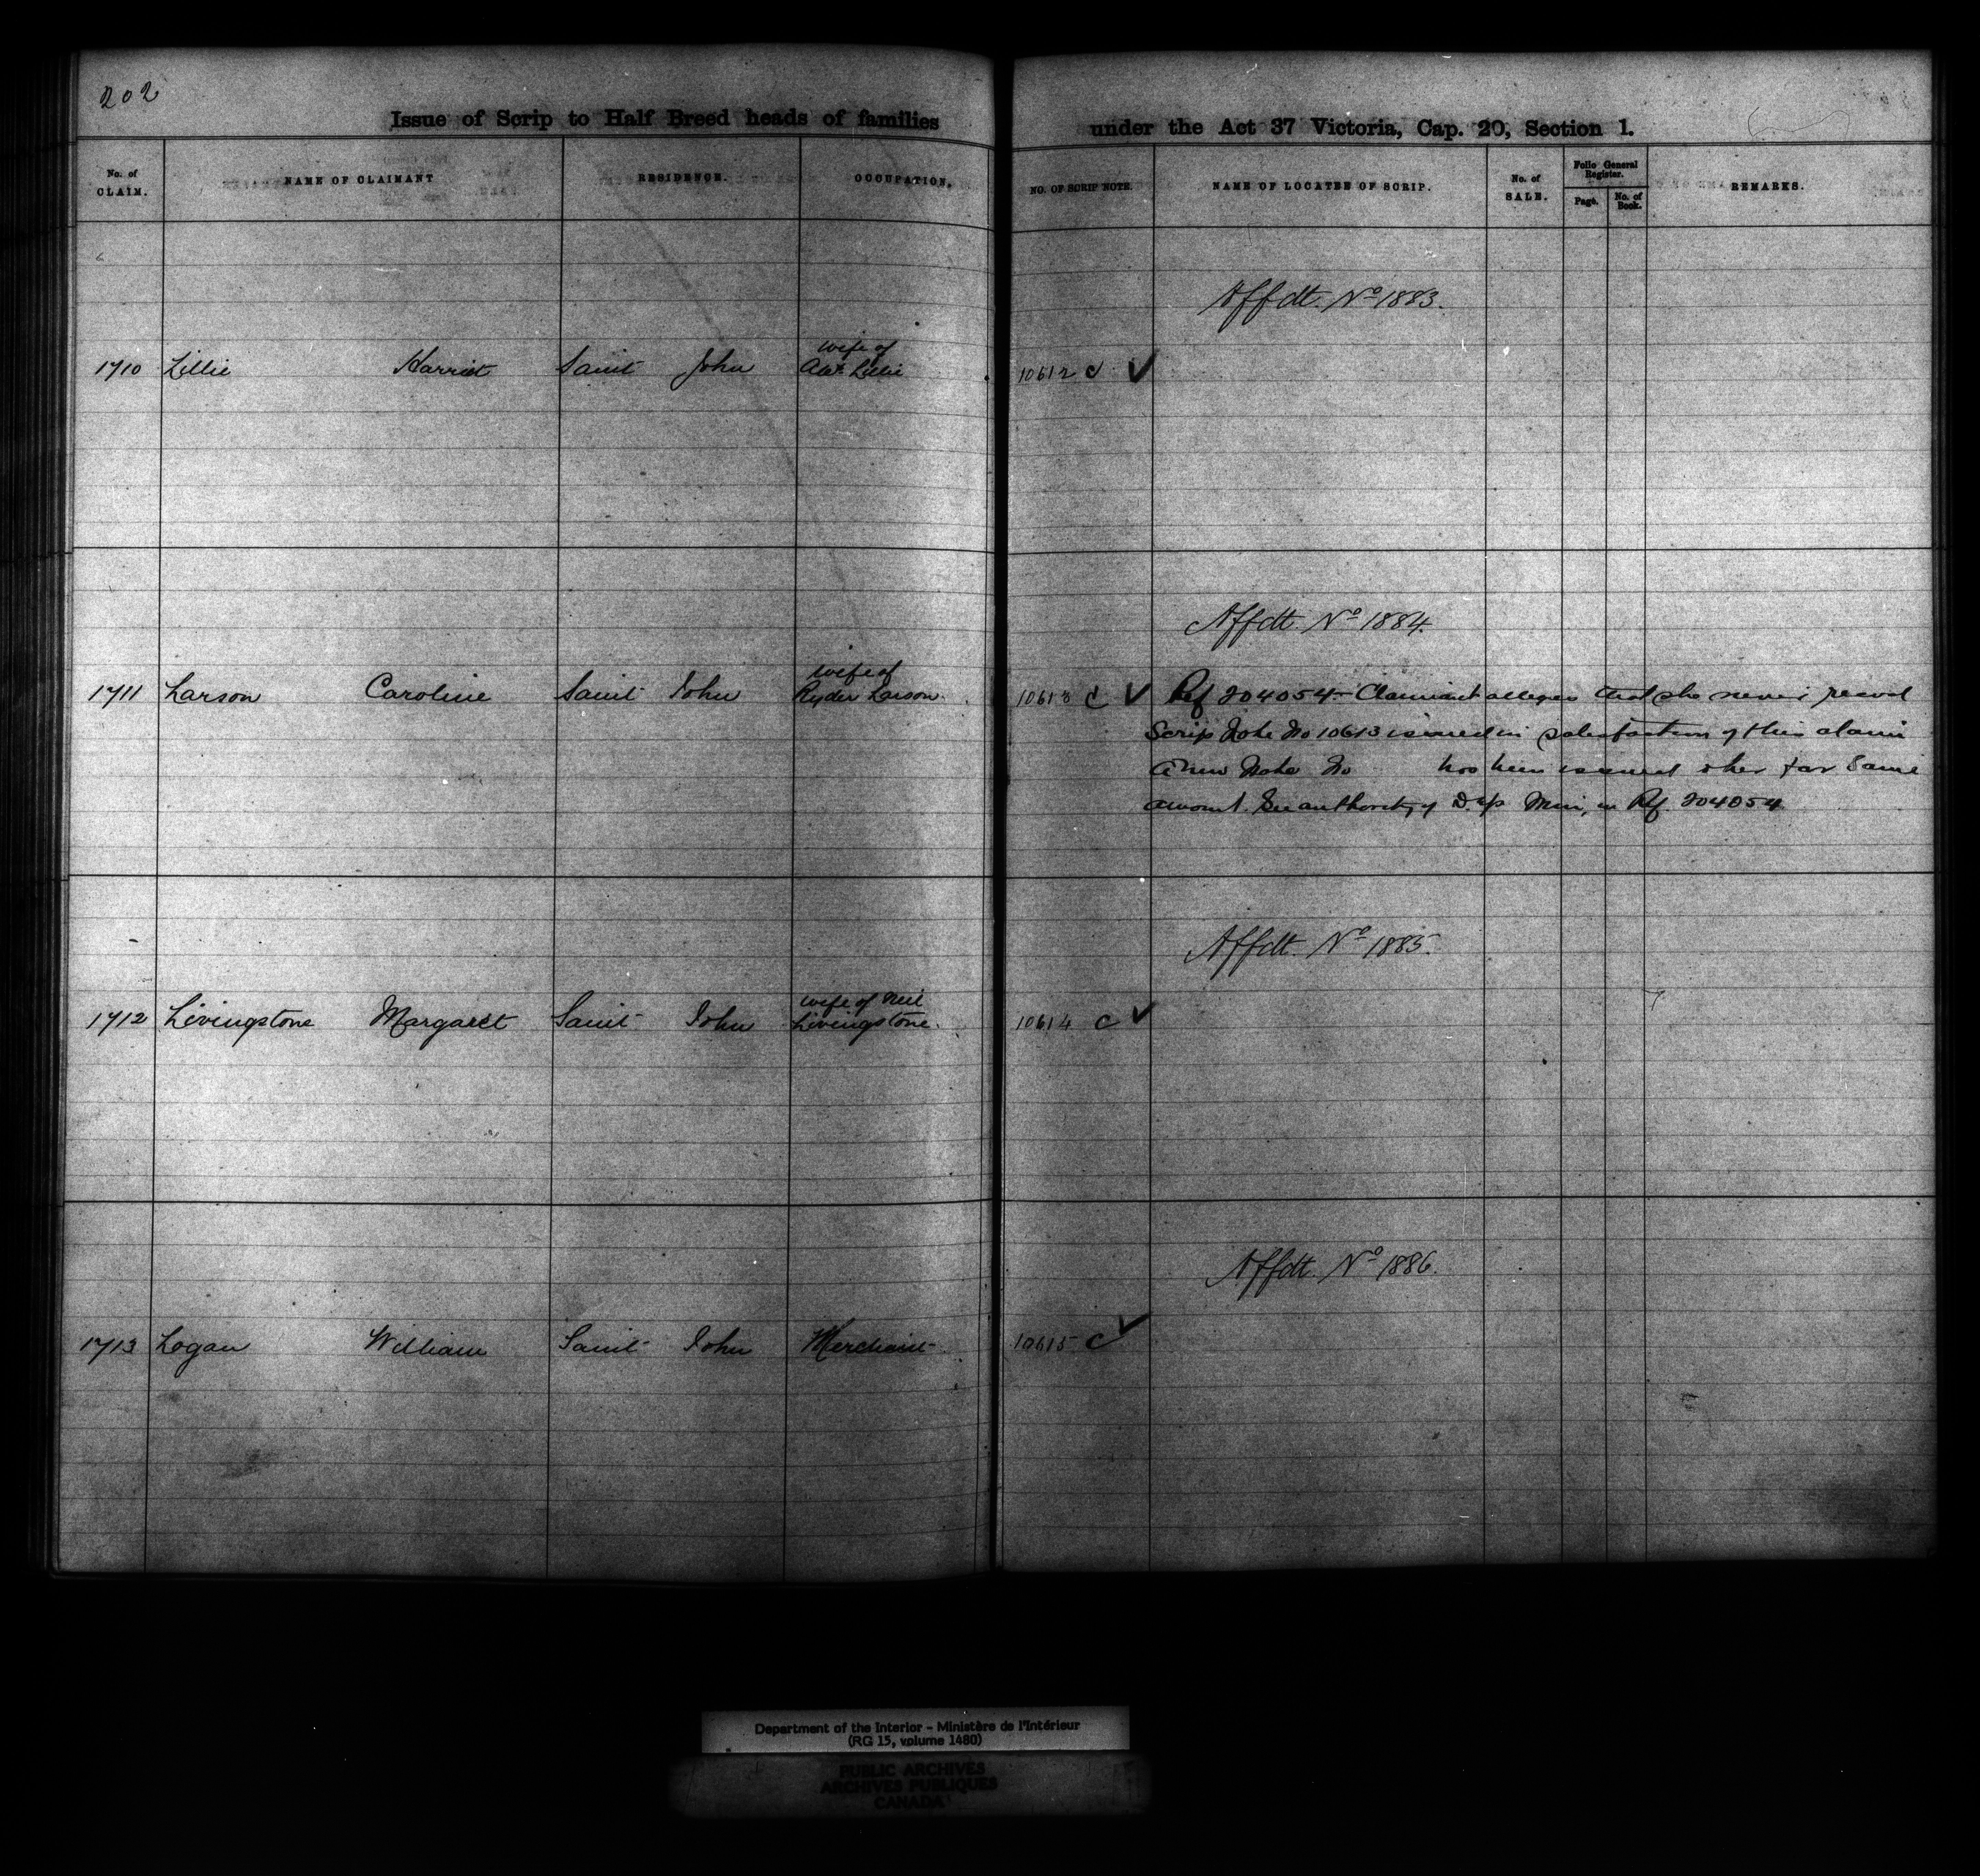 202
Issue of Scrip to Half Breed heads of families under the Act 37 Victoria, Cap. 20, Section 1.
No. of CLAIM. NAME OF CLAIMANT RESIDENCE. OCCUPATION. NO. OF SCRIP NOTE. NAME OF LOCATEE OF SCRIP. No. of SALE. Folio General Register. Page. No. of Book. REMARKS.
Affdt. No 1883.
wife of
1710 Lillie Harriet Saint John Alex Lillie 10612 c ✓
Affdt. No 1884.
wife of
1711 Larson Caroline Saint John Ryder Larson. 10613 c ✓ Ref 204054 - Claimant alleges that she never recvd
Scrip Note No 10613 issued in satisfaction of this claim
A new Note No has been issued to her for same
amount. See authority of Dep Min, in Ref. 204054
Affdt. No 1885.
wife of Neil
1712 Livingstone Margaret Saint John Livingstone. 10614 c ✓
Affdt. No 1886.
1713 Logan William Saint John Merchant 10615 c ✓
Department of the Interior - Ministère de l'Intérieur
(RG 15, volume 1480)
PUBLIC ARCHIVES
ARCHIVES PUBLIQUES
CANADA